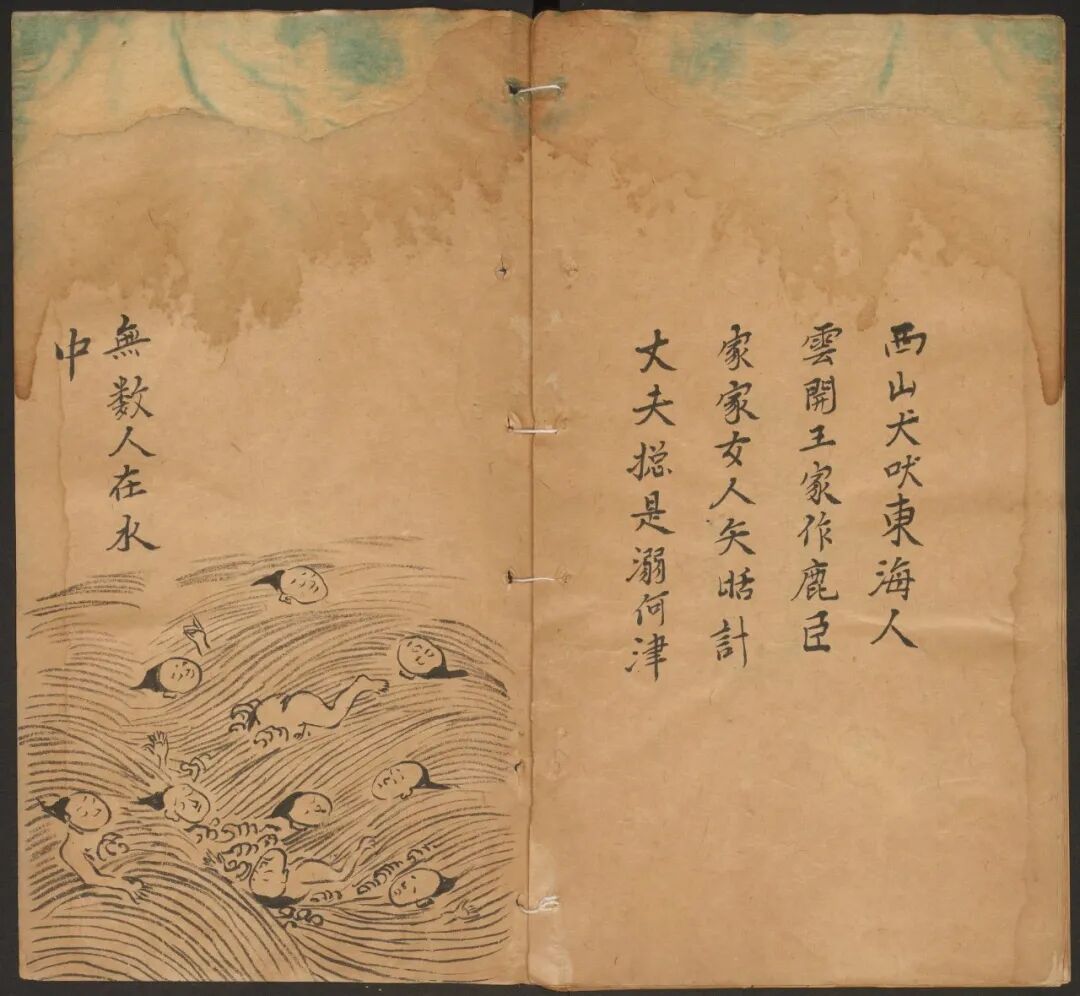 西山犬吠東海人
雲開王家作鹿臣
家家女人矢計
丈夫捴是溺何津
無数人在水
中